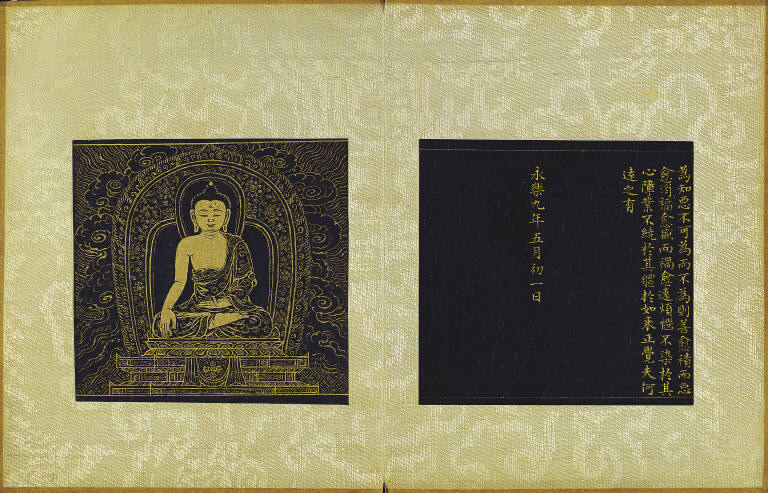 為知惡不可為而不為則善愈積而惡
愈消福愈崇而禍愈遠煩惱不染於其
心障業不纏於其軀於如來正覺夫何
遠之有
永樂九年五月初一日